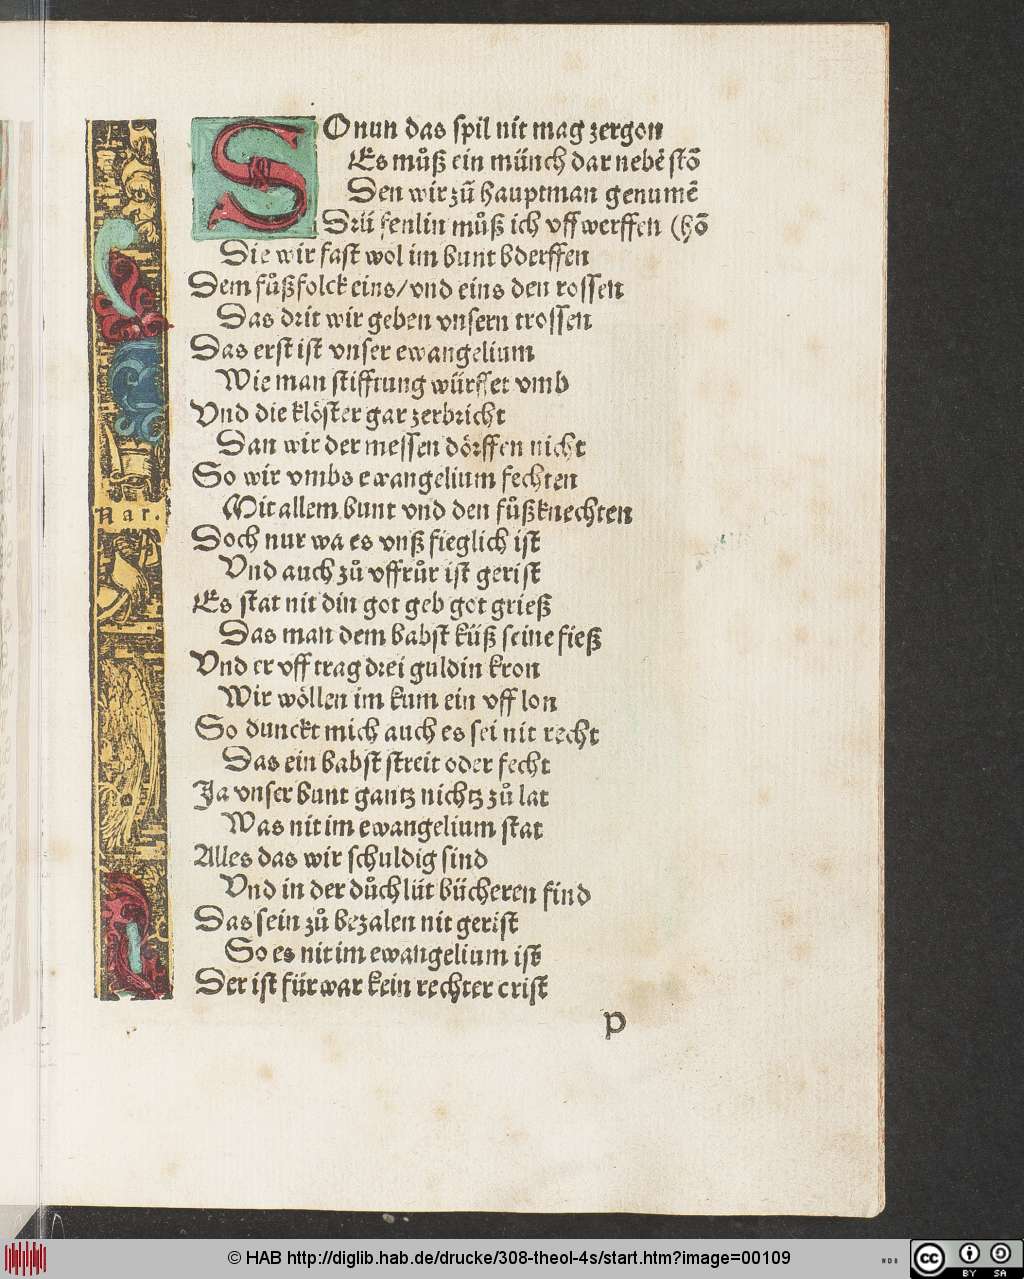 SOnun das spil nit mag zergon
Es můß ein münch dar nebē stō
Den wir zů hauptman genumē
Drü fenlin můß ich vff werffen (hō
Die wir fast wol im bunt bderffen
Dem fůßfolck eins/vnd eins den rossen
Das drit wir geben vnsern trossen
Das erst ist vnser ewangelium
Wie man stifftung würffet vmb
Vnd die klöster gar zerbricht
Dan wir der messen dörffen nicht
So wir vmbs ewangelium fechten
Mit allem bunt vnd den fůßknechten
Nar.
Doch nur wa es vnß fieglich ist
Vnd auch zů vffrůr ist gerist
Es stat nit din got geb got grieß
Das man dem babst küß seine fieß
Vnd er vff trag drei guldin kron
Wir wöllen im kum ein vff lon
So dunckt mich auch es sei nit recht
Das ein babst streit oder fecht
Ja vnser bunt gantz nichtz zů lat
Was nit im ewangelium stat
Alles das wir schuldig sind
Vnd in der důchlüt bücheren find
Das sein zů bezalen nit gerist
So es nit im ewangelium ist
Der ist für war kein rechter crist
p
© HAB http://diglib.hab.de/drucke/308-theol-4s/start.htm?image=00109
WDB
cc BY SA